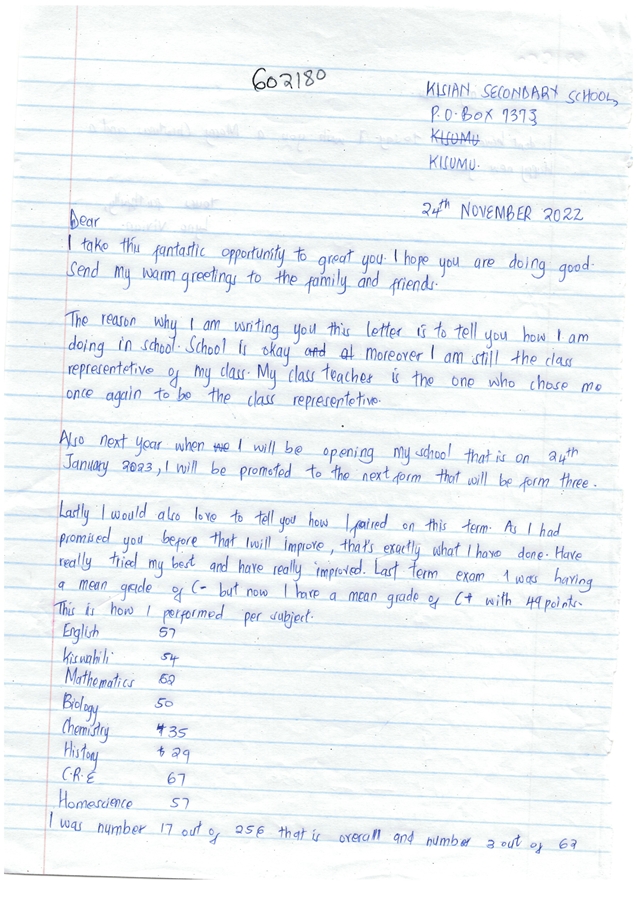 602180
KISIAN SECONDARY SCHOOL,
P.O. BOX 7373
KISUMU
KISUMU.
24th NOVEMBER 2022
Dear
I take this fantastic opportunity to great you. I hope you are doing good.
Send my warm greetings to the family and friends.
The reason why I am writing you this letter is to tell you how I am
doing in school. School is okay and at moreover I am still the class
representetive of my class. My class teacher is the one who chose me
once again to be the class representetive.
Also next year when we I will be opening my school that is on 24th
January 2023, I will be promoted to the next form that will be form three.
Lastly I would also love to tell you how I faired on this term. As I had
promised you before that I will improve, that's exactly what I have done. Have
really tried my best and have really improved. Last term exam I was having
a mean grade of C- but now I have a mean grade of C+ with 49 points.
This is how I performed per subject.
English 57
Kiswahili 54
Mathematics 62
Biology 50
Chemistry 35
History 29
C.R.E 67
Homescience 57
I was number 17 out of 256 that is overall and number 3 out of 63